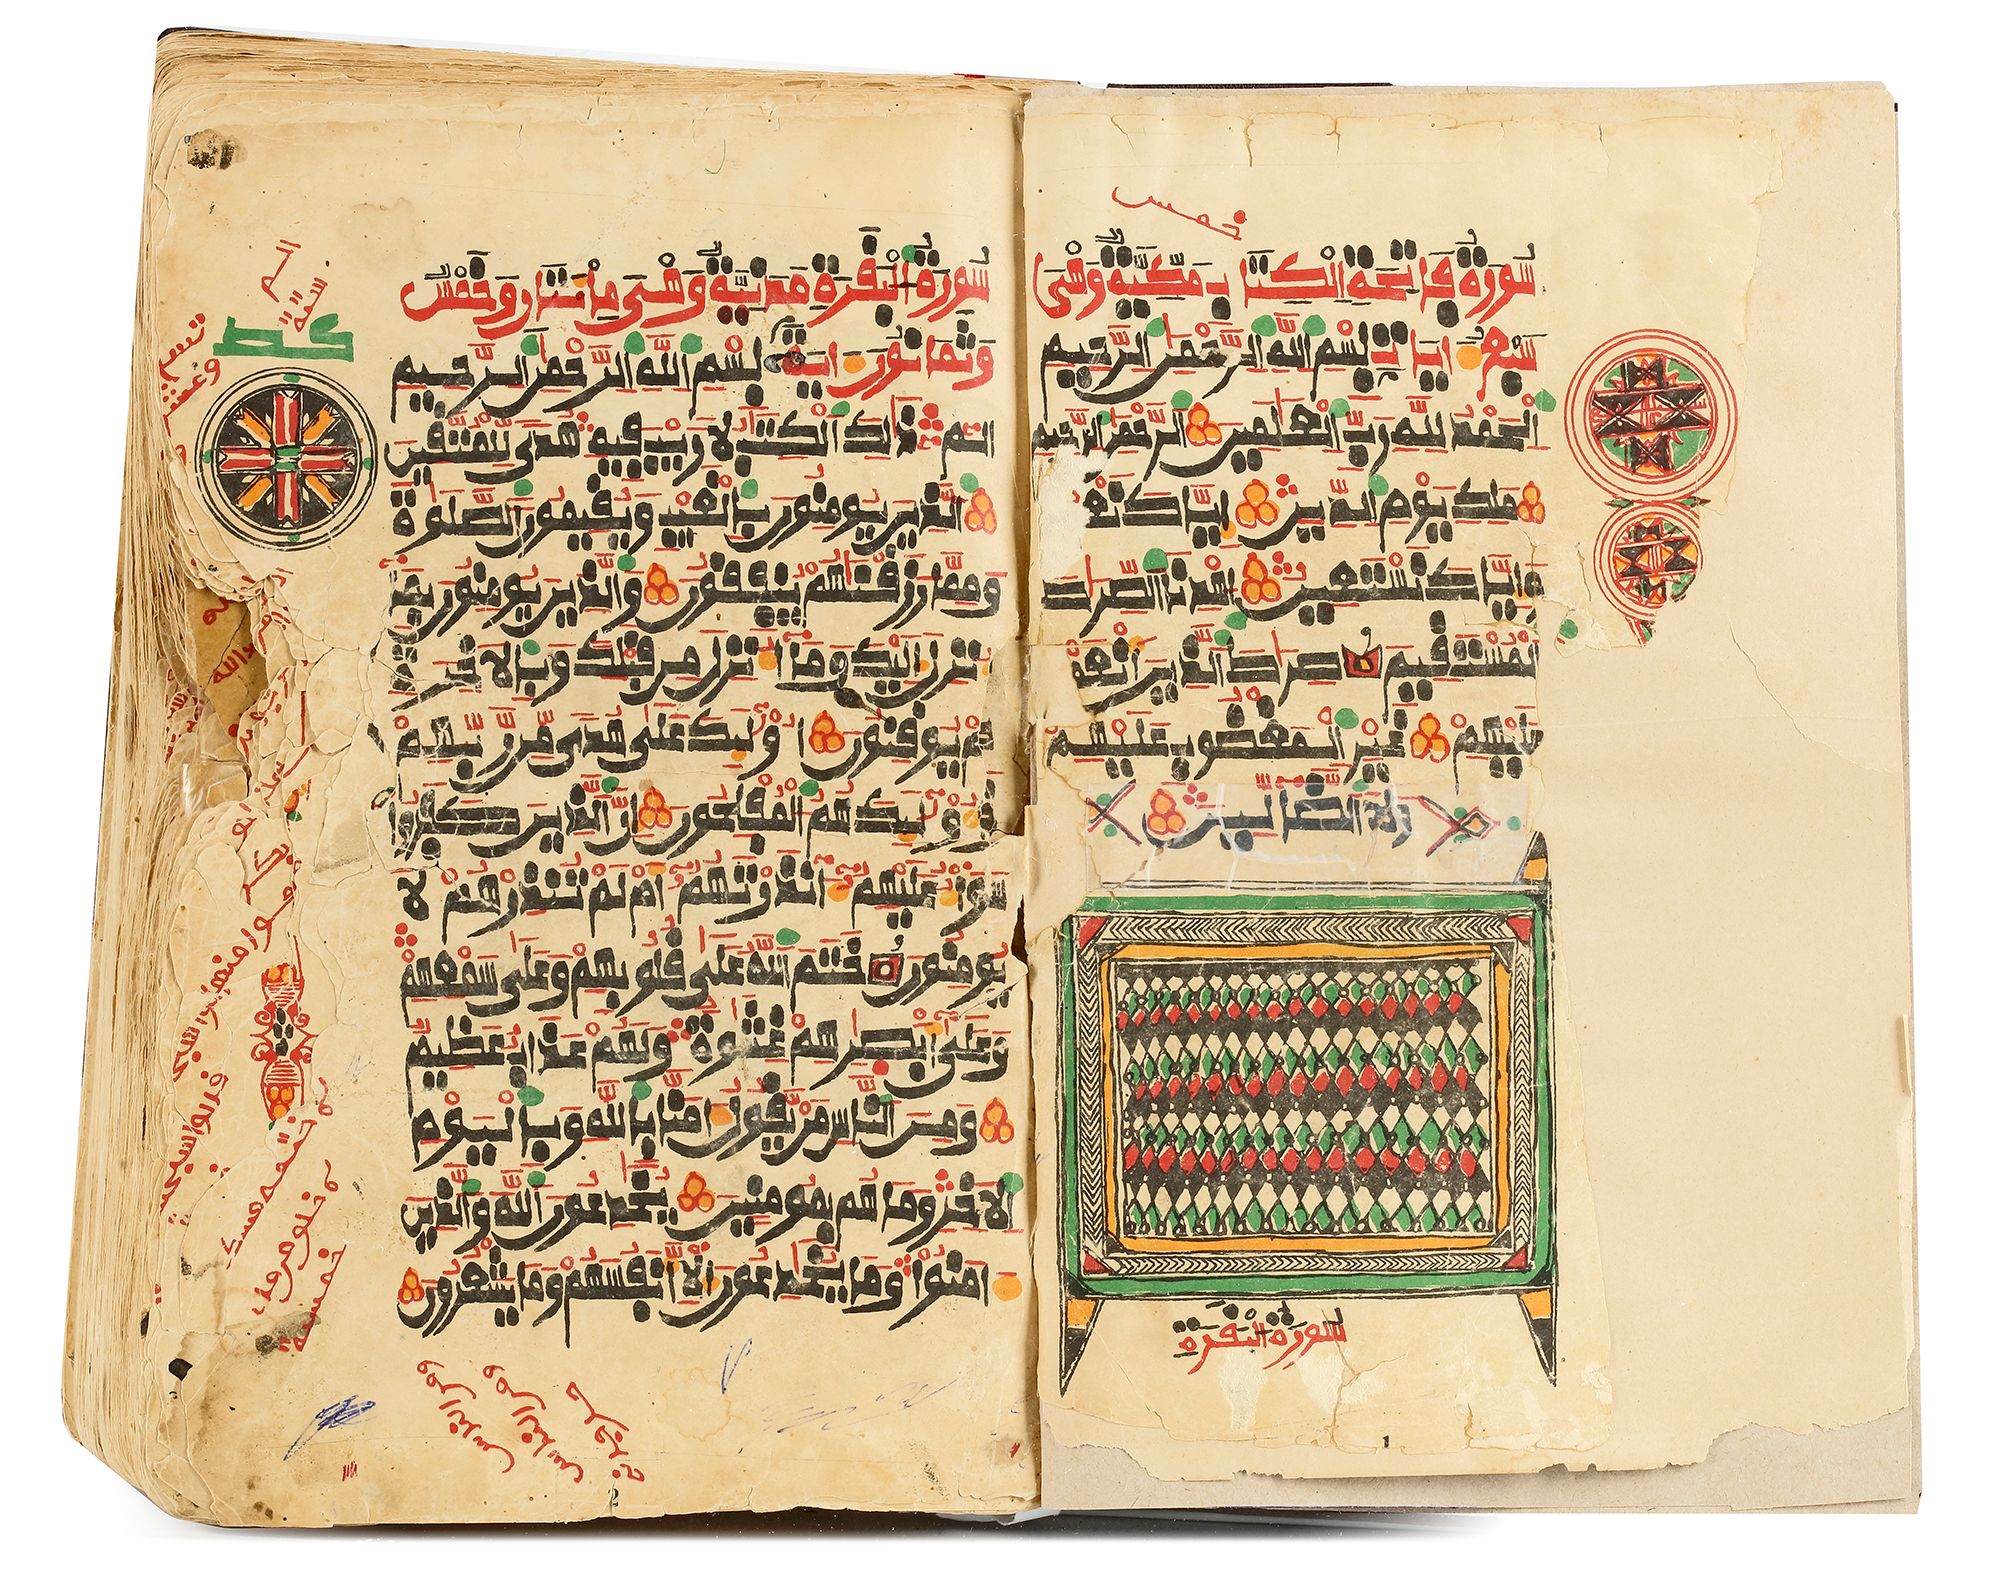 خمس
سورة فاتحة الكتاب مكية وهي
سبع ايات بسم الله الرحمن الرحيم
الحمد لله رب العلمين الرحمن الرحيم
ملك يوم الدين اياك نع
واياك نستعين اهدنا الصراط
المستقيم صراط الذين انعم
عليهم غير المغضوب عليهم
ولا الضالين
سورة البقرة
1
سورة البقرة مدنية وهي مائتان وخمس
وثمانون اية بسم الله الرحمن الرحيم
الم ذلك الكتب لا ريب فيه هدى للمتقين
الذين يومنون بالغيب ويقيمون الصلوة
ومما رزقنهم ينفقون والذين يومنون بما
انزل اليك وما انزل من قبلك وبالاخرة
هم يوقنون اوليك على هدى من ربهم
واوليك هم المفلحون ان الذين كفروا
سواء عليهم انذرتهم ام لم تنذرهم لا
يومنون ختم الله على قلوبهم وعلى سمعهم
وعلى ابصرهم غشوة ولهم عذاب عظيم
ومن الناس من يقول امنا بالله وباليوم
الاخر وما هم بمومنين يخدعون الله والذين
امنوا وما يخدعون الا انفسهم وما يشعرون
2